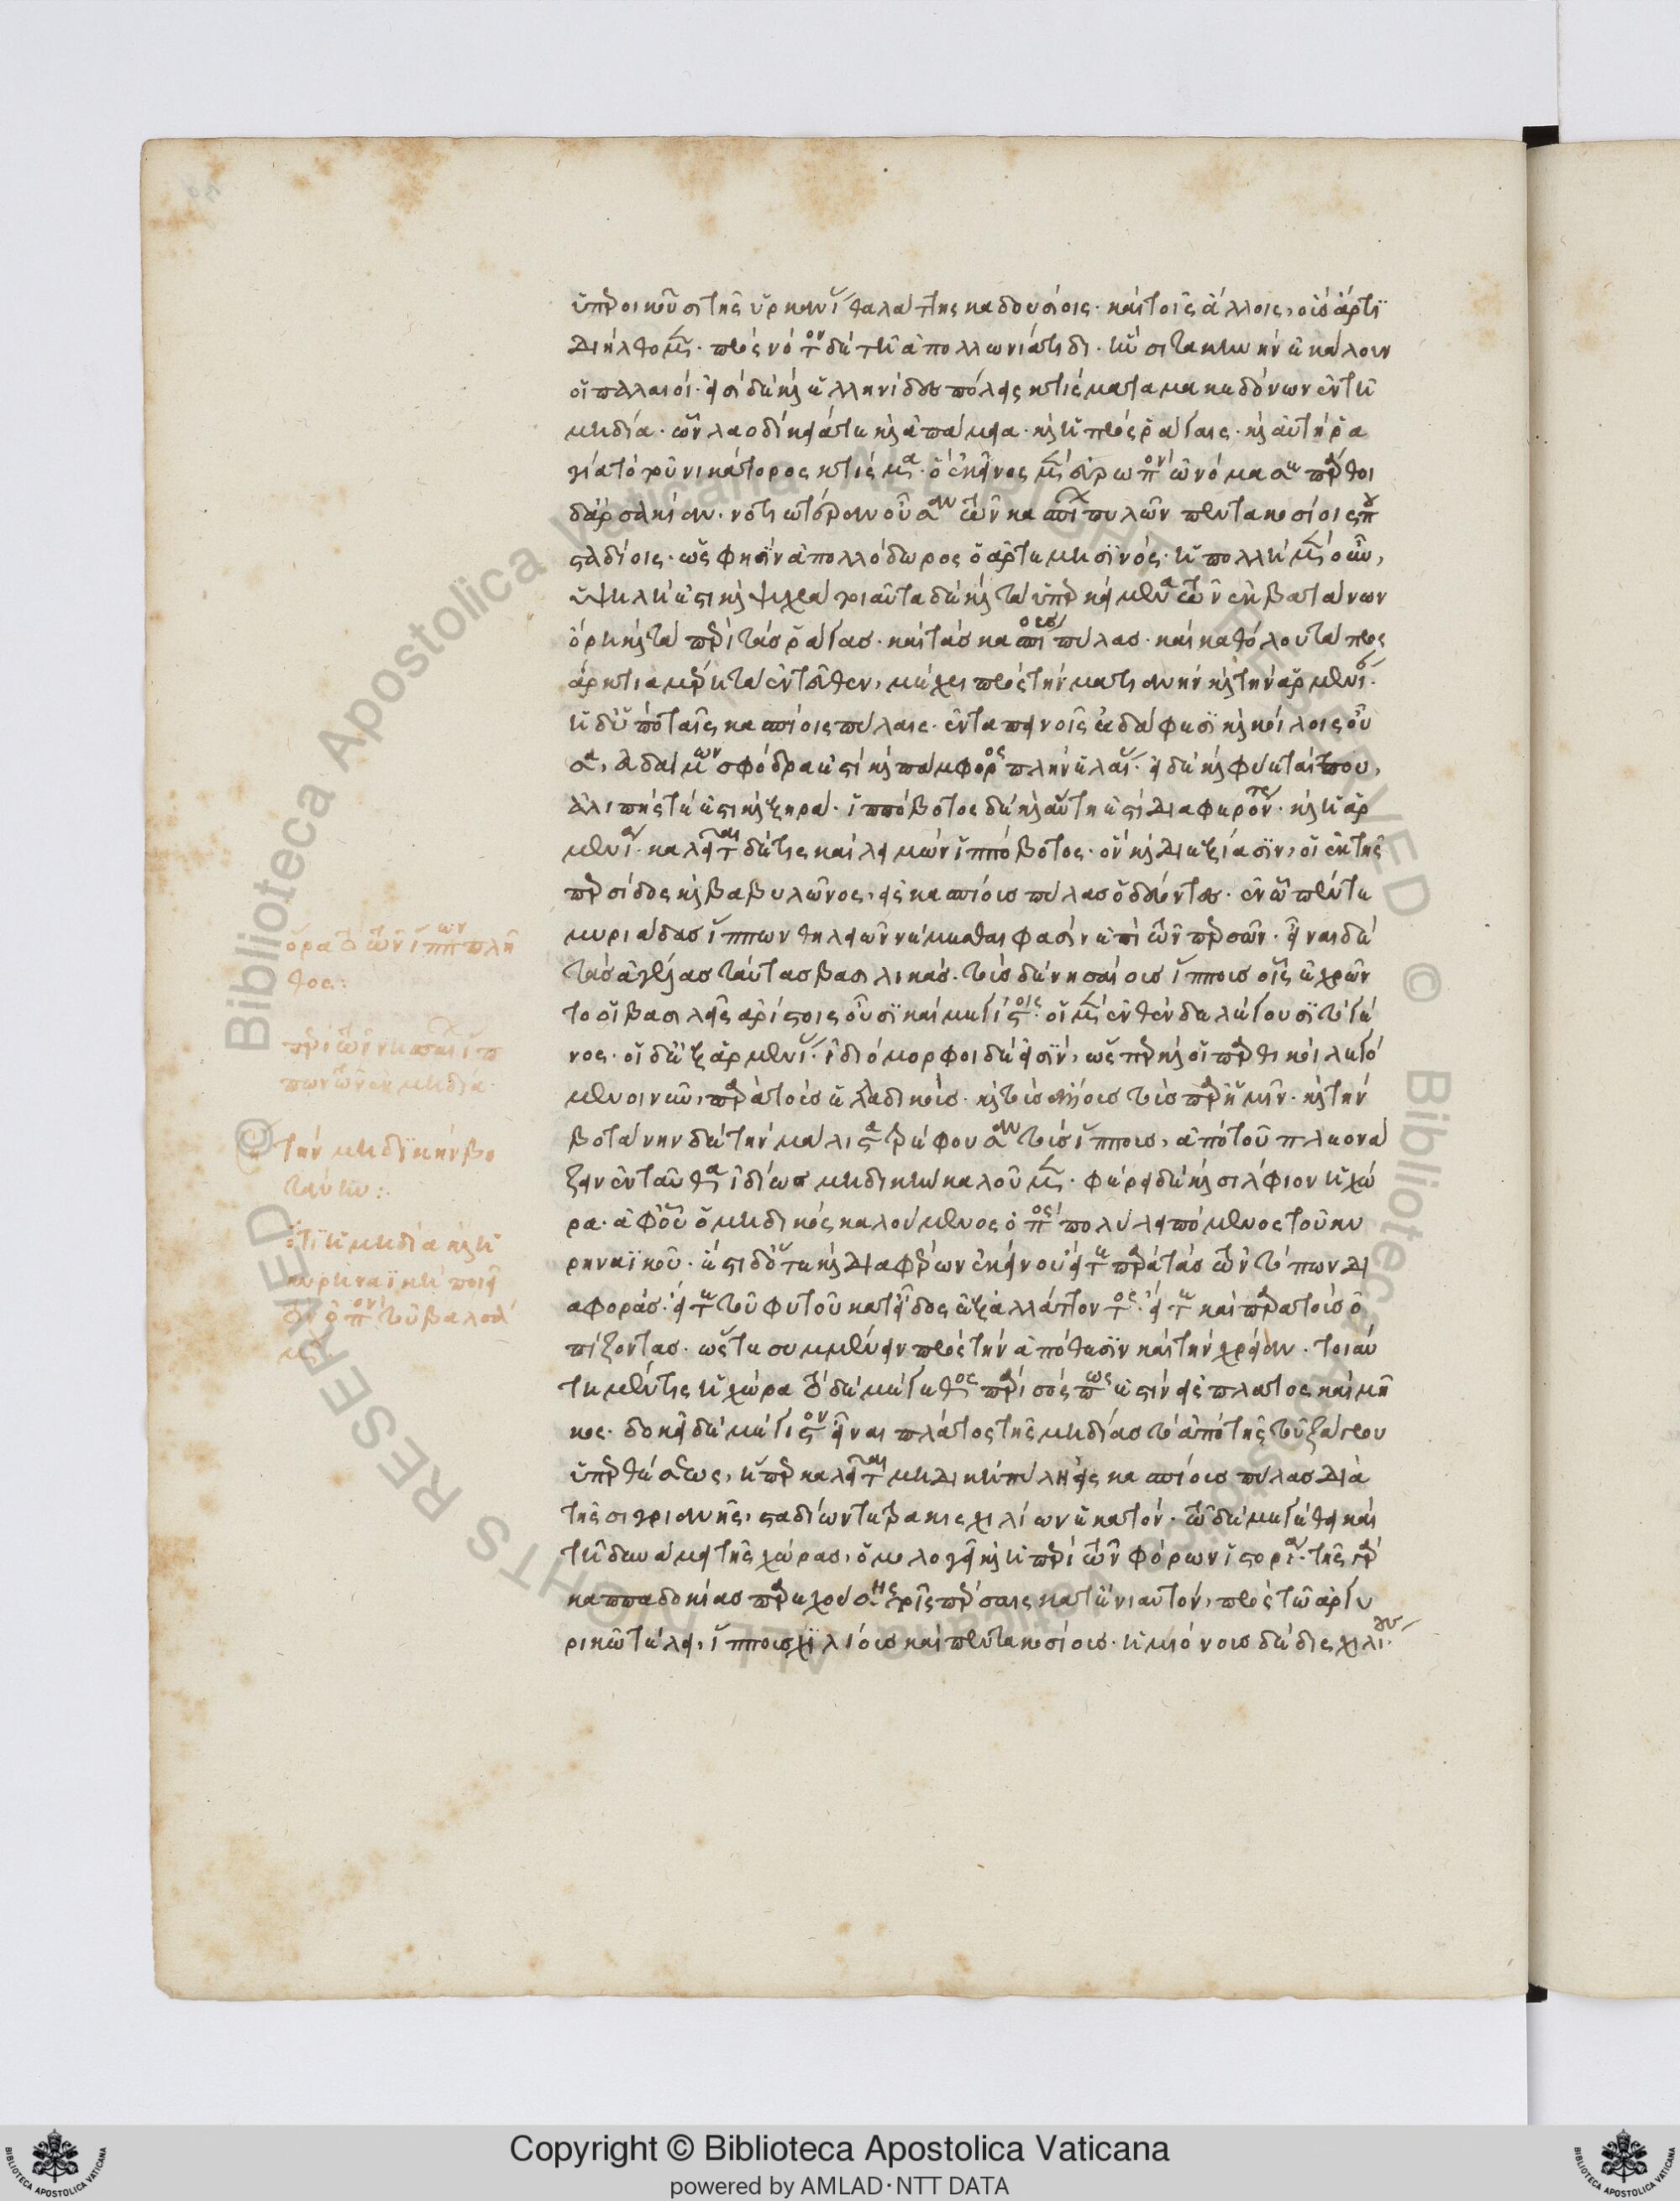 ὑπεροικοῦσι τῆς ὑρκανίας θαλάττης καδουσίοις· καὶ τοῖς ἄλλοις, οὓς ἄρτι
διήλθομεν· πρὸς νότον δὲ τῆ ἀπολλωνιάτιδι· ἣν σιτακηνὴν ἐκάλουν
οἱ παλαιοί· εἰσὶ δὲ καὶ ἑλληνίδες πόλεις κτίσματα μακεδόνων ἐν τῆ
μηδία· ὧν λαοδίκειά τε καὶ ἀπάμεια· καὶ ἡ πρὸς ῥάγαις· καὶ αὐτὴ ῥά
γα τὸ τοῦ νικάτορος κτίσμα· ὃ ἐκεῖνος μὲν εὔρωπον ὠνόμασε πάρθοι
δὲ ἀρσακίαν· νοτιωτέραν οὖσαν τῶν κασπίων πυλῶν πεντακοσίοις που
σταδίοις· ὥς φησιν ἀπολλόδωρος ὁ ἀρτεμισινός· ἡ πολλὴ μὲν οὖν,
ὑψηλή ἐστι καὶ ψυχρά τοιαῦτα δὲ καὶ τὰ ὑπερκείμενα τῶν ἐκβατάνων
ὄρη καὶ τὰ περὶ τὰς ῥάγας· καὶ τὰς κασπίους πύλας· καὶ καθόλου τὰ προς
άρκτια μέρη τὰ ἐντεῦθεν, μέχρι πρὸς τὴν ματιανὴν καὶ τὴν ἀρμενίαν·
ἡ δ' ὑπὸ ταῖς κασπίοις πύλαις· ἐν ταπεινοῖς ἐδάφεσι καὶ κοίλοις οὖ
σα, εὐδαίμων σφόδρα ἐστὶ καὶ πάμφορος πλὴν ἐλαίας· εἰ δὲ καὶ φύεταί που,
ἀλιπής τέ ἐστι καὶ ξηρά· ἱππόβοτος δὲ καὶ αὕτη ἐστὶ διαφερόντως· καὶ ἡ ἀρ
μενία· καλεῖται δέ τις καὶ λειμὼν ἱππόβοτος· ὃν καὶ διεξίασιν, οἱ ἐκ τῆς
περσίδος καὶ βαβυλῶνος, εἰς κασπίους πύλας ὁδεύοντες· ἐν ᾧ πέντε
μυριάδας ἵππων θηλειῶν νέμεσθαι φασὶν ἐπὶ τῶν περσῶν· εἶναι δὲ
τὰς ἀγέλας ταύτας βασιλικάς· τοὺς δὲ νησαίους ἵππους οἷς ἐχρῶν
το οἱ βασιλεῖς ἀρίστοις οὖσι καὶ μεγίστοις· οἱ μὲν ἐνθένδε λέγουσι τὸ γέ
νος· οἱ δὲ ἐξ ἀρμενίας· ἰδιόμορφοι δέ εἰσιν, ὥσπερ καὶ οἱ παρθικοὶ λεγό
μενοι νῦν, παρὰ τοὺς ἑλλαδικούς· καὶ τοὺς ἄλλους τοὺς παρ' ἡμῖν· καὶ τὴν
βοτάνην δὲ τὴν μάλιστα τρέφουσαν τοὺς ἵππους, ἀπὸ τοῦ πλεονά
ζειν ἐνταῦθα ἰδίως μηδικὴν καλοῦμεν· φέρει δὲ καὶ σίλφιον ἡ χώ
ρα· ἀφ' οὗ ὁ μηδικὸς καλούμενος ὀπός πολὺ λειπόμενος τοῦ κυ
ρηναϊκοῦ· ἔστι δ' ὅτε καὶ διαφέρων ἐκείνου εἴτε παρὰ τὰς τῶν τόπων δι
αφοράς· εἴτε τοῦ φυτοῦ κατ' εἶδος ἐξαλλάττοντος· εἴτε καὶ παρὰ τοὺς ὀ
πίζοντας· ὥστε συμμένειν πρὸς τὴν ἀπόθεσιν καὶ τὴν χρείαν· τοιαύ
τη μέν τις ἡ χώρα τὸ δὲ μέγεθος πάρισός πως ἐστὶν εἰς πλάτος καὶ μῆ
κος· δοκεῖ δὲ μέγιστον εἶναι πλάτος τῆς μηδίας τὸ ἀπὸ τῆς τοῦ ζάγρου
ὑπερθέσεως, ἥπερ καλεῖται μηδικὴ πύλη εἰς κασπίους πύλας διὰ
τῆς σιγριανῆς, σταδίων τετρακισχιλίων ἑκατόν· τῶ δὲ μεγέθει καὶ
τῆ δυνάμει τῆς χώρας, ὁμολογεῖ καὶ ἡ περὶ τῶν φόρων ἱστορία· τῆς γὰρ
καππαδοκίας παρεχούσης τοῖς πέρσαις κατ' ἐνιαυτόν, πρὸς τῶ ἀργυ
ρικῶ τέλει, ἵππους χιλίους καὶ πεντακοσίους· ἡμιόνους δὲ δισχιλίους·
ὅρα τὸ τῶν ἵππων πλῆ
θος:
τὴν μηδικὴν βο
τάνην:
ὅτι ἡ μηδία καὶ ἡ
κυρηναϊκὴ ποιεῖ
Copyright © Biblioteca Apostolica Vaticana
powered by AMLAD·NTT DATA